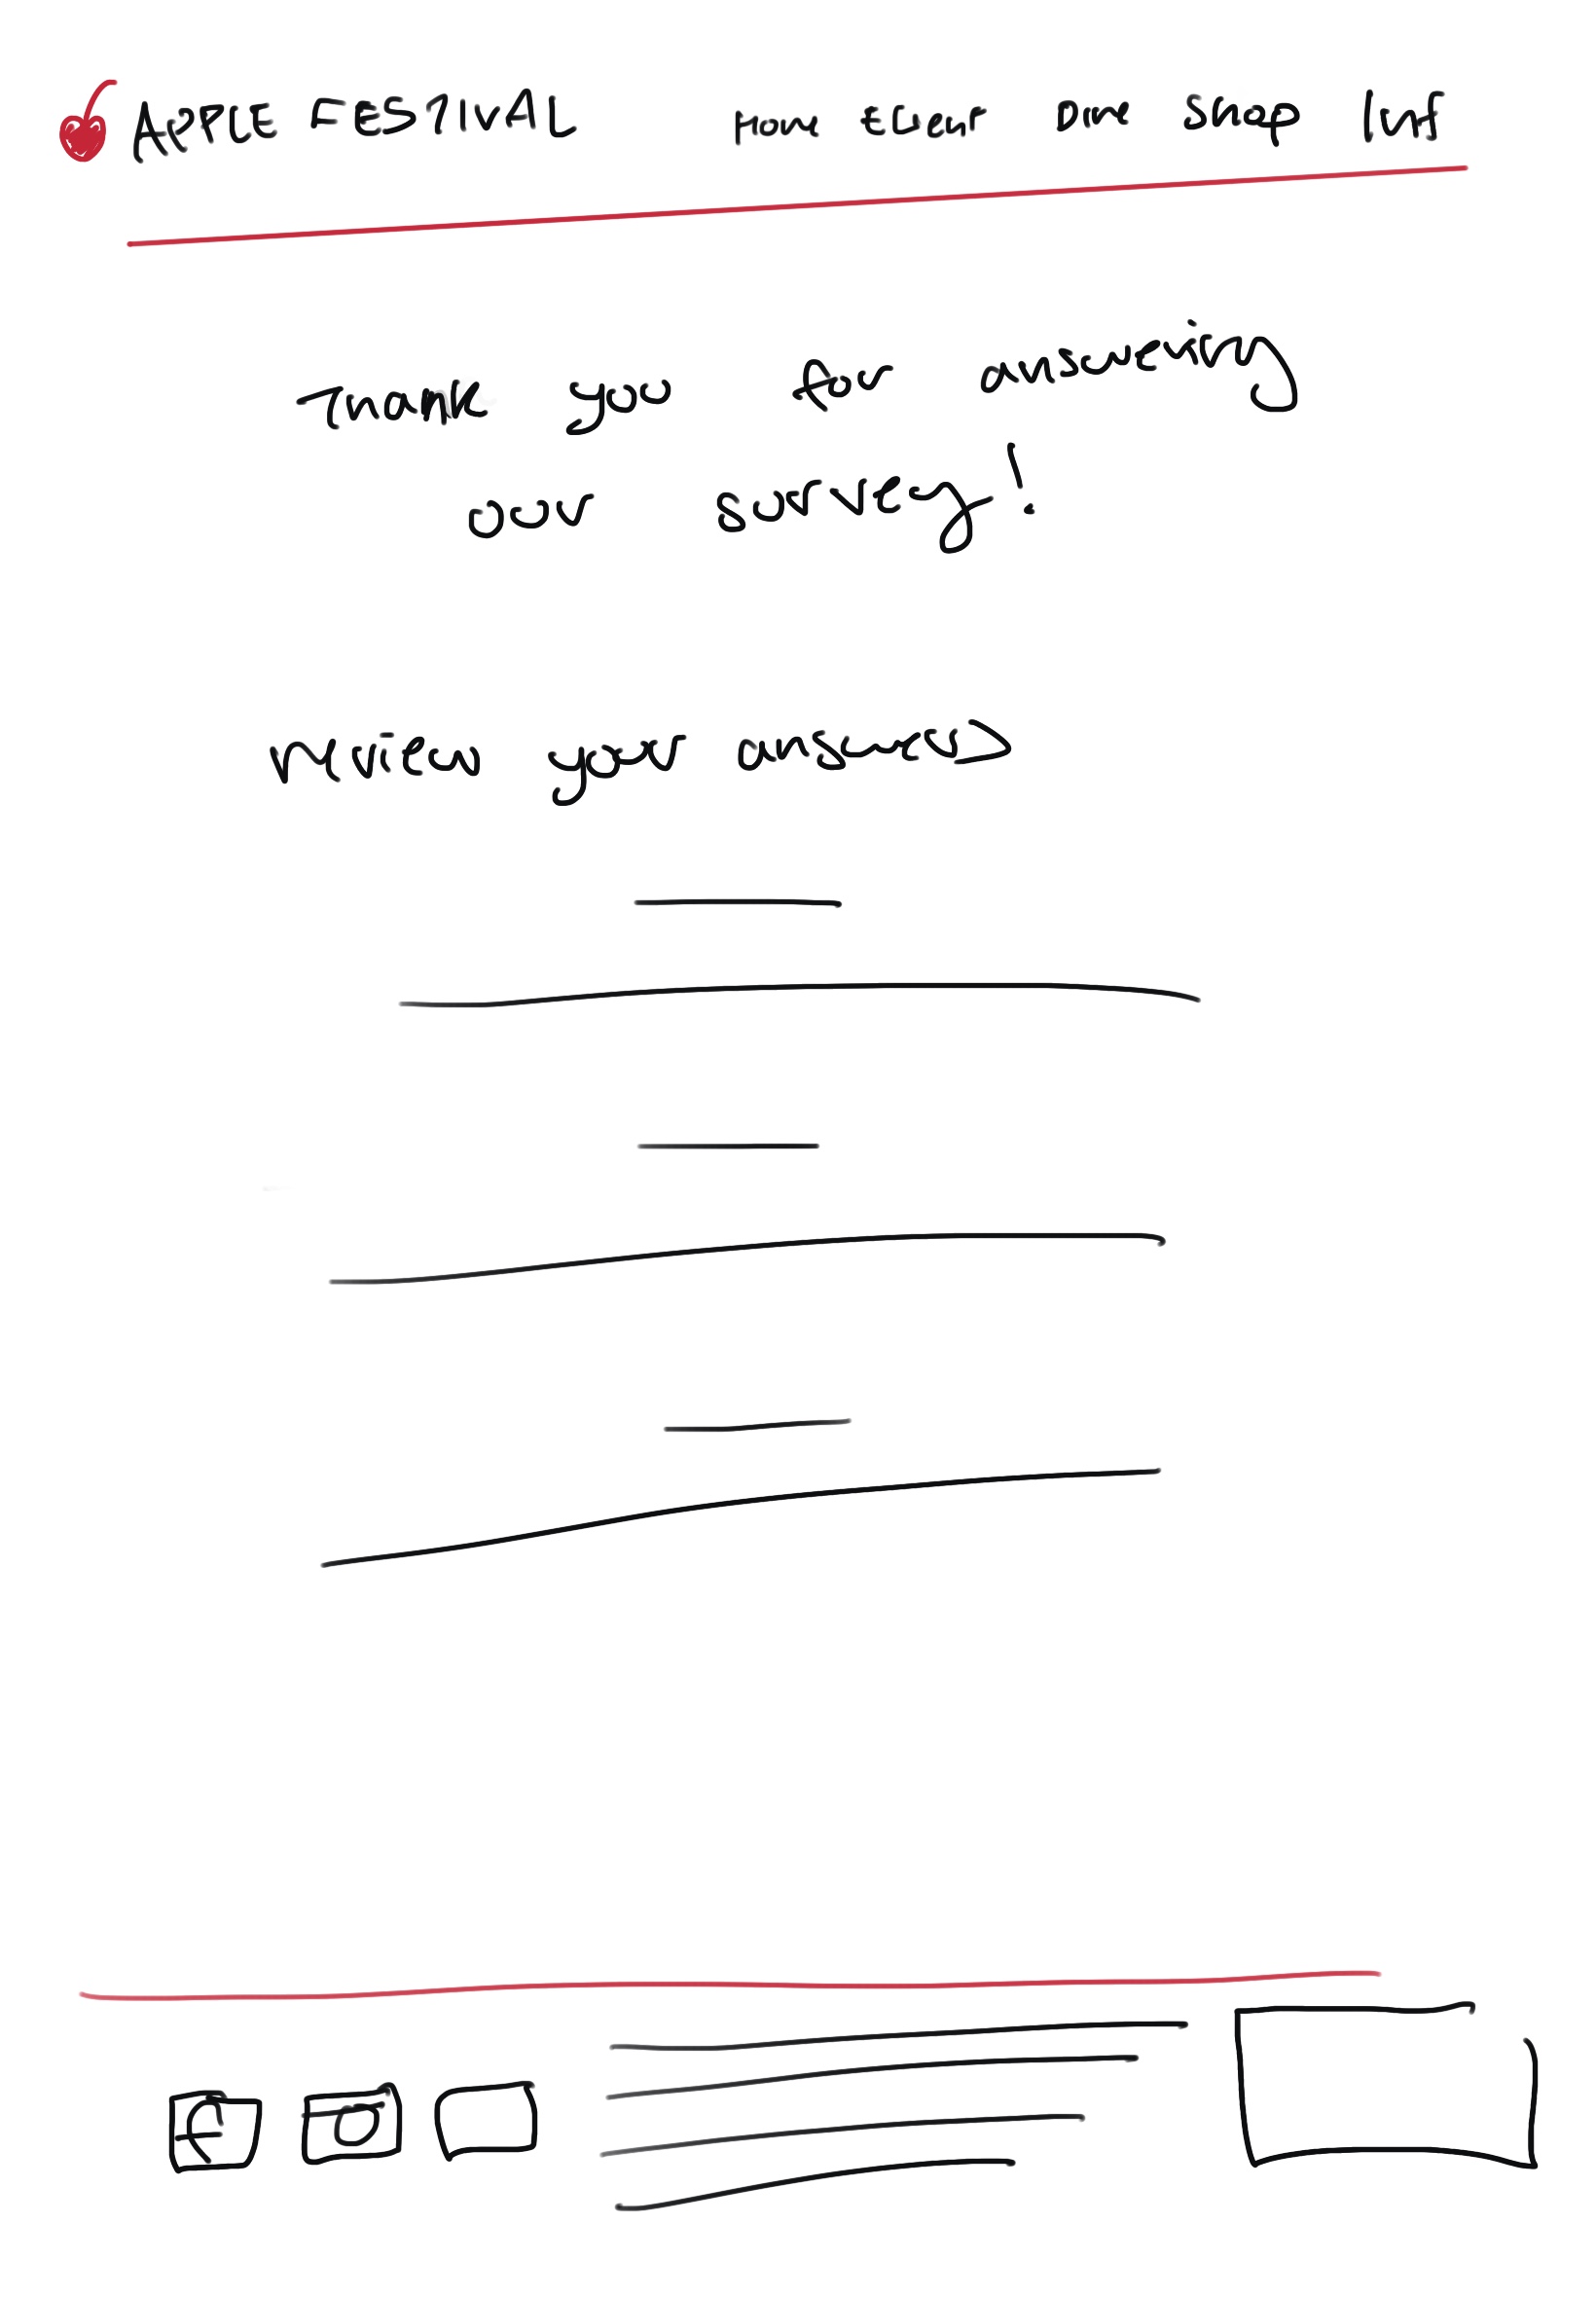 APPLE FESTIVAL Home Event Dine Shop Inf
Thank you for answering
our survey!
review your answers
f